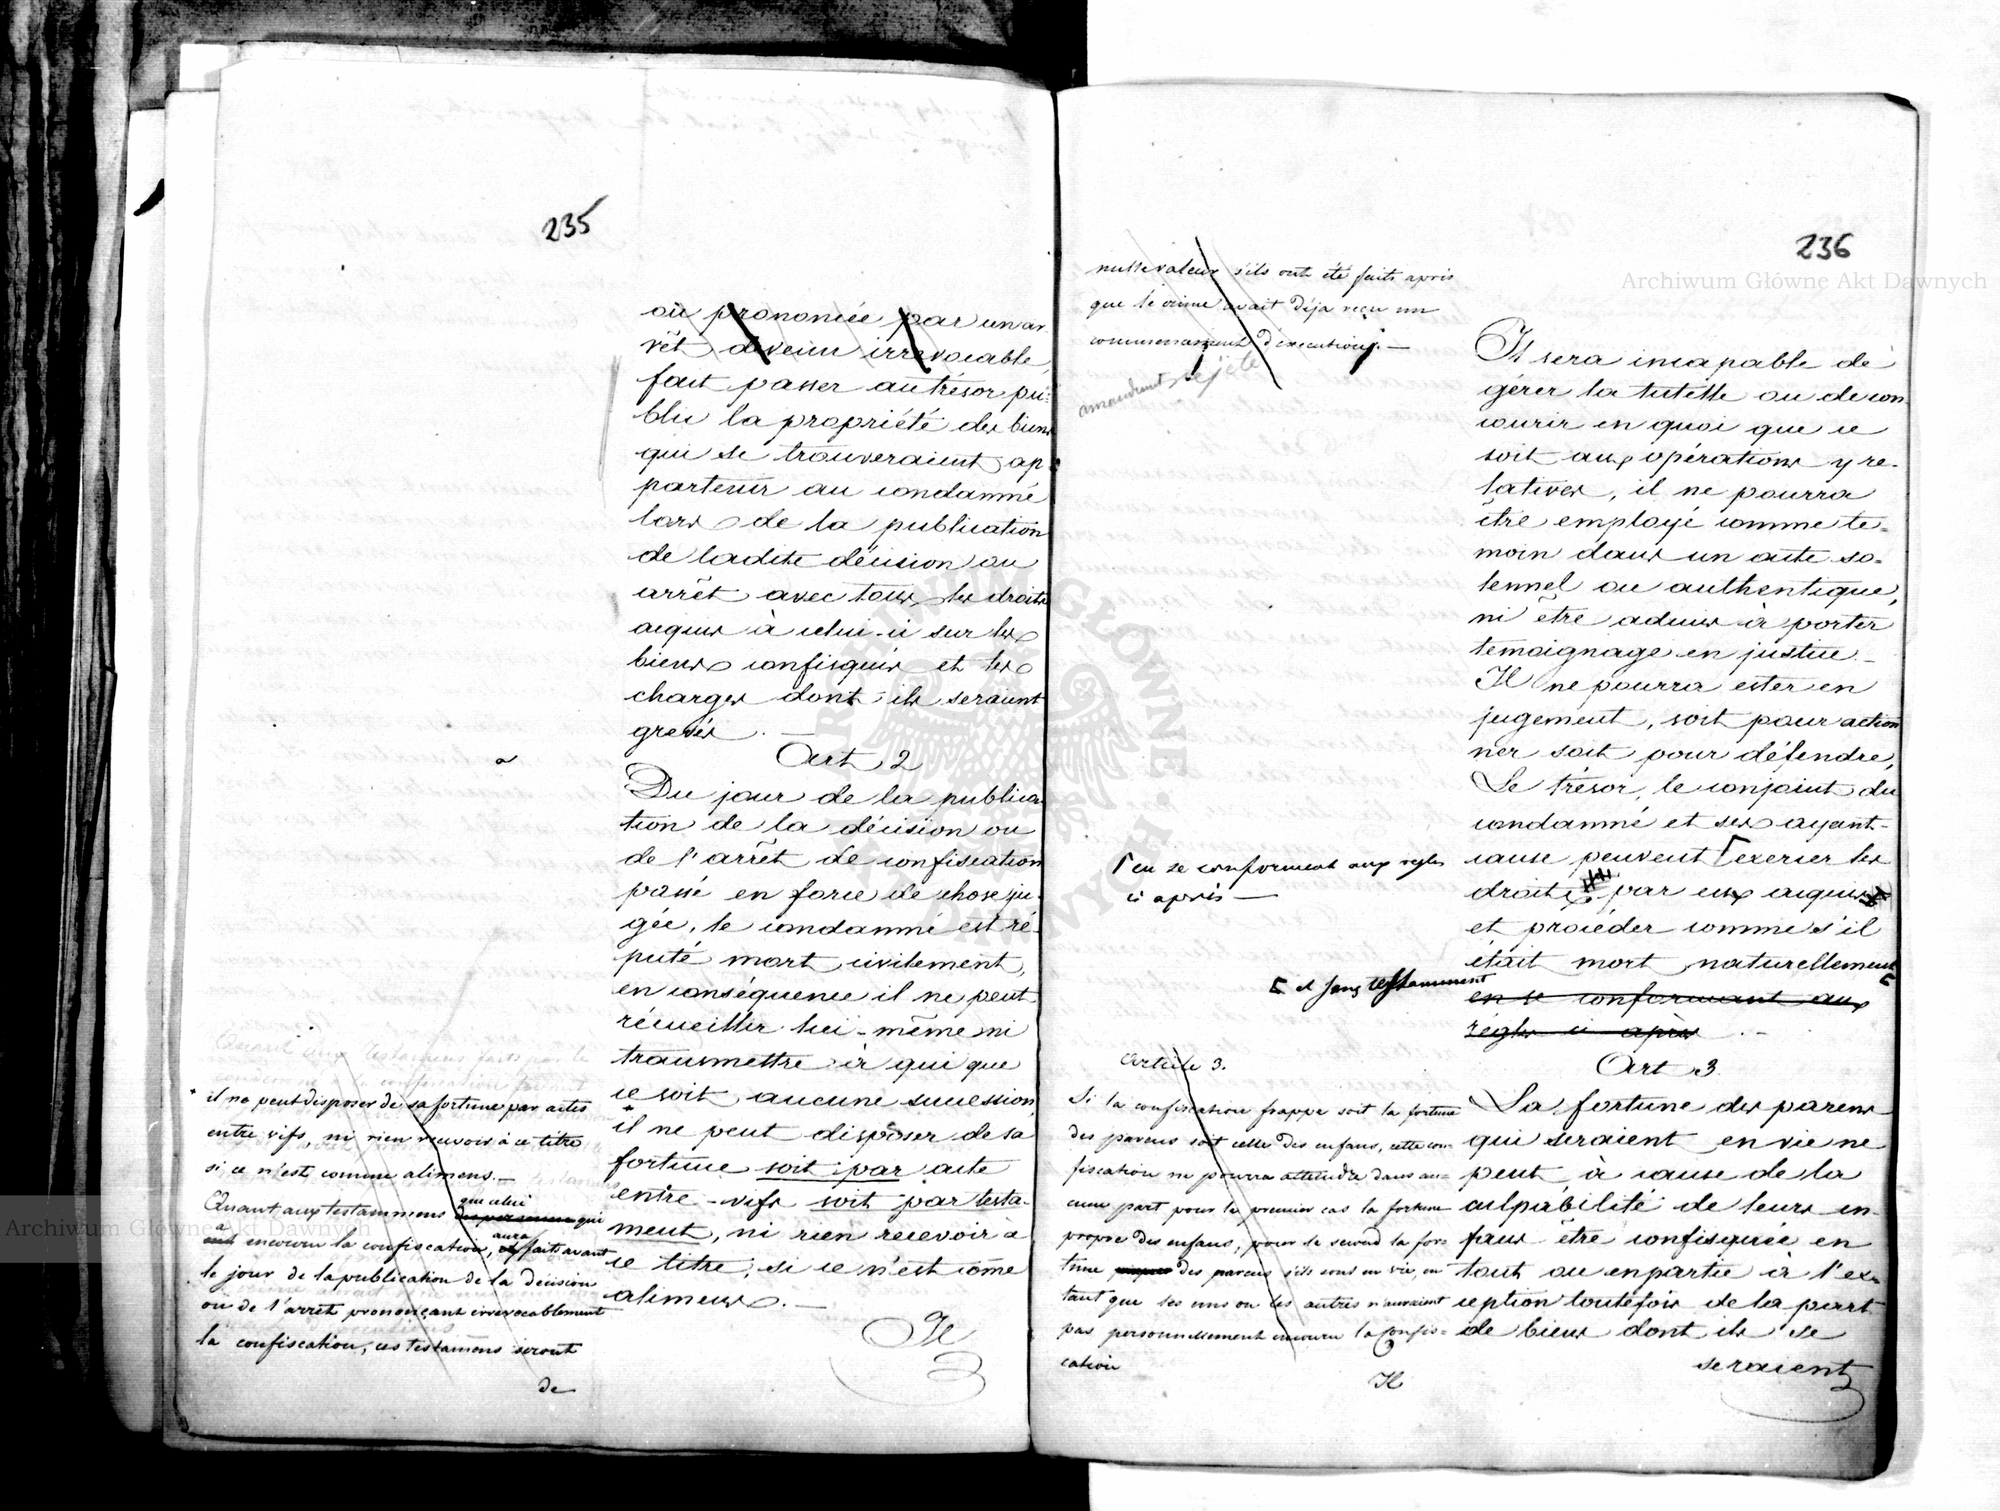 235
où prononcée par un ar
rêt devenu irrevocable,
fait passer au trésor pu-
blic la propriété des biens
qui se trouveraient ap
partenir au condamné
lors de la publication
de ladite décision ou
arrêt avec tous les droits
acquis à celui-ci sur les
biens confisqués et les
charges dont ils seraient
grevés. —
Art 2
Du jour de la publica
tion de la décision ou
de l'arrêt de confiscation
passé en force de chose ju-
gée, le condamné est ré-
puté mort civilement,
en conséquence il ne peut
récueillir lui-même ni
transmettre à qui que
ce soit aucune succession,
il ne peut disposer de sa
fortune soit par acte
entre-vifs soit par testa-
ment, ni rien recevoir à
ce titre, si ce n'est come
alimens. —
Il
* il ne peut disposer de sa fortune par actes
entre vifs, ni rien recevoir à ce titre
si ce n'est comme alimens. —
que celui
Quant aux testammens des personnes qui
a aura
ont encouru la confiscation, fait avant
le jour de la publication de la décision
où de l'arrêt prononçant irrevocablement
la confiscation, ces testamens seront
de
236
nulle valeur s'ils ont été faits après
que le crime avait déja reçu un
commencement d'execution. —
amendement rejeté
Il sera incapable de
gérer la tutelle ou de con
courir en quoi que ce
soit aux opérations y re-
latives, il ne pourra
être employé comme te-
moin dans un acte so-
lennel ou authentique,
ni être admis à porter
temoignage en justice. —
Il ne pourra ester en
jugement, soit pour action
ner soit pour défendre,
Le trésor, le conjoint du
condamné et ses ayant-
cause peuvent ⌈exercer les
droits par eux acquis
et procéder comme s'il
était mort naturellement
en se conformant aux
règles ci après. —
⌈en se conformant aux regles
ci après —
⌈ et sans testamment
Art 3
La fortune des parens
qui seraient en vie ne
peut à cause de la
culpabilité de leurs en-
fans être confisquée en
tout ou en partie à l'ex-
ception toutefois de la part
de biens dont ils se
seraient
Article 3.
Si la confiscation frappe soit la fortune
des parens soit celle des enfans, cette con-
fiscation ne pourra atteindre dans au-
cune part pour le premier cas la fortune
propre des enfans, pour le second la for-
tune des parens s'ils sont en vie, en
tant que les uns ou les autres n'auraient
pas personnellement encouru la confis-
cation
Il
Archiwum Główne Akt Dawnych
Archiwum Główne Akt Dawnych
ARCHIWUM GŁÓWNE AKT DAWNYCH